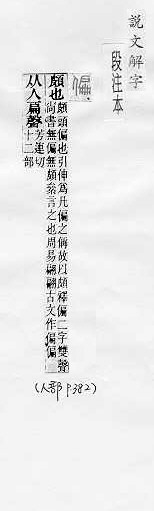 說文解字
段注本
偏
頗也
頗頭偏也引伸爲凡偏之偁故以頗釋偏二字雙聲
尙書無偏無頗䇾言之也周易翩翩古文作偏偏
从人扁聲
芳連切
十二部
(人部 P382)